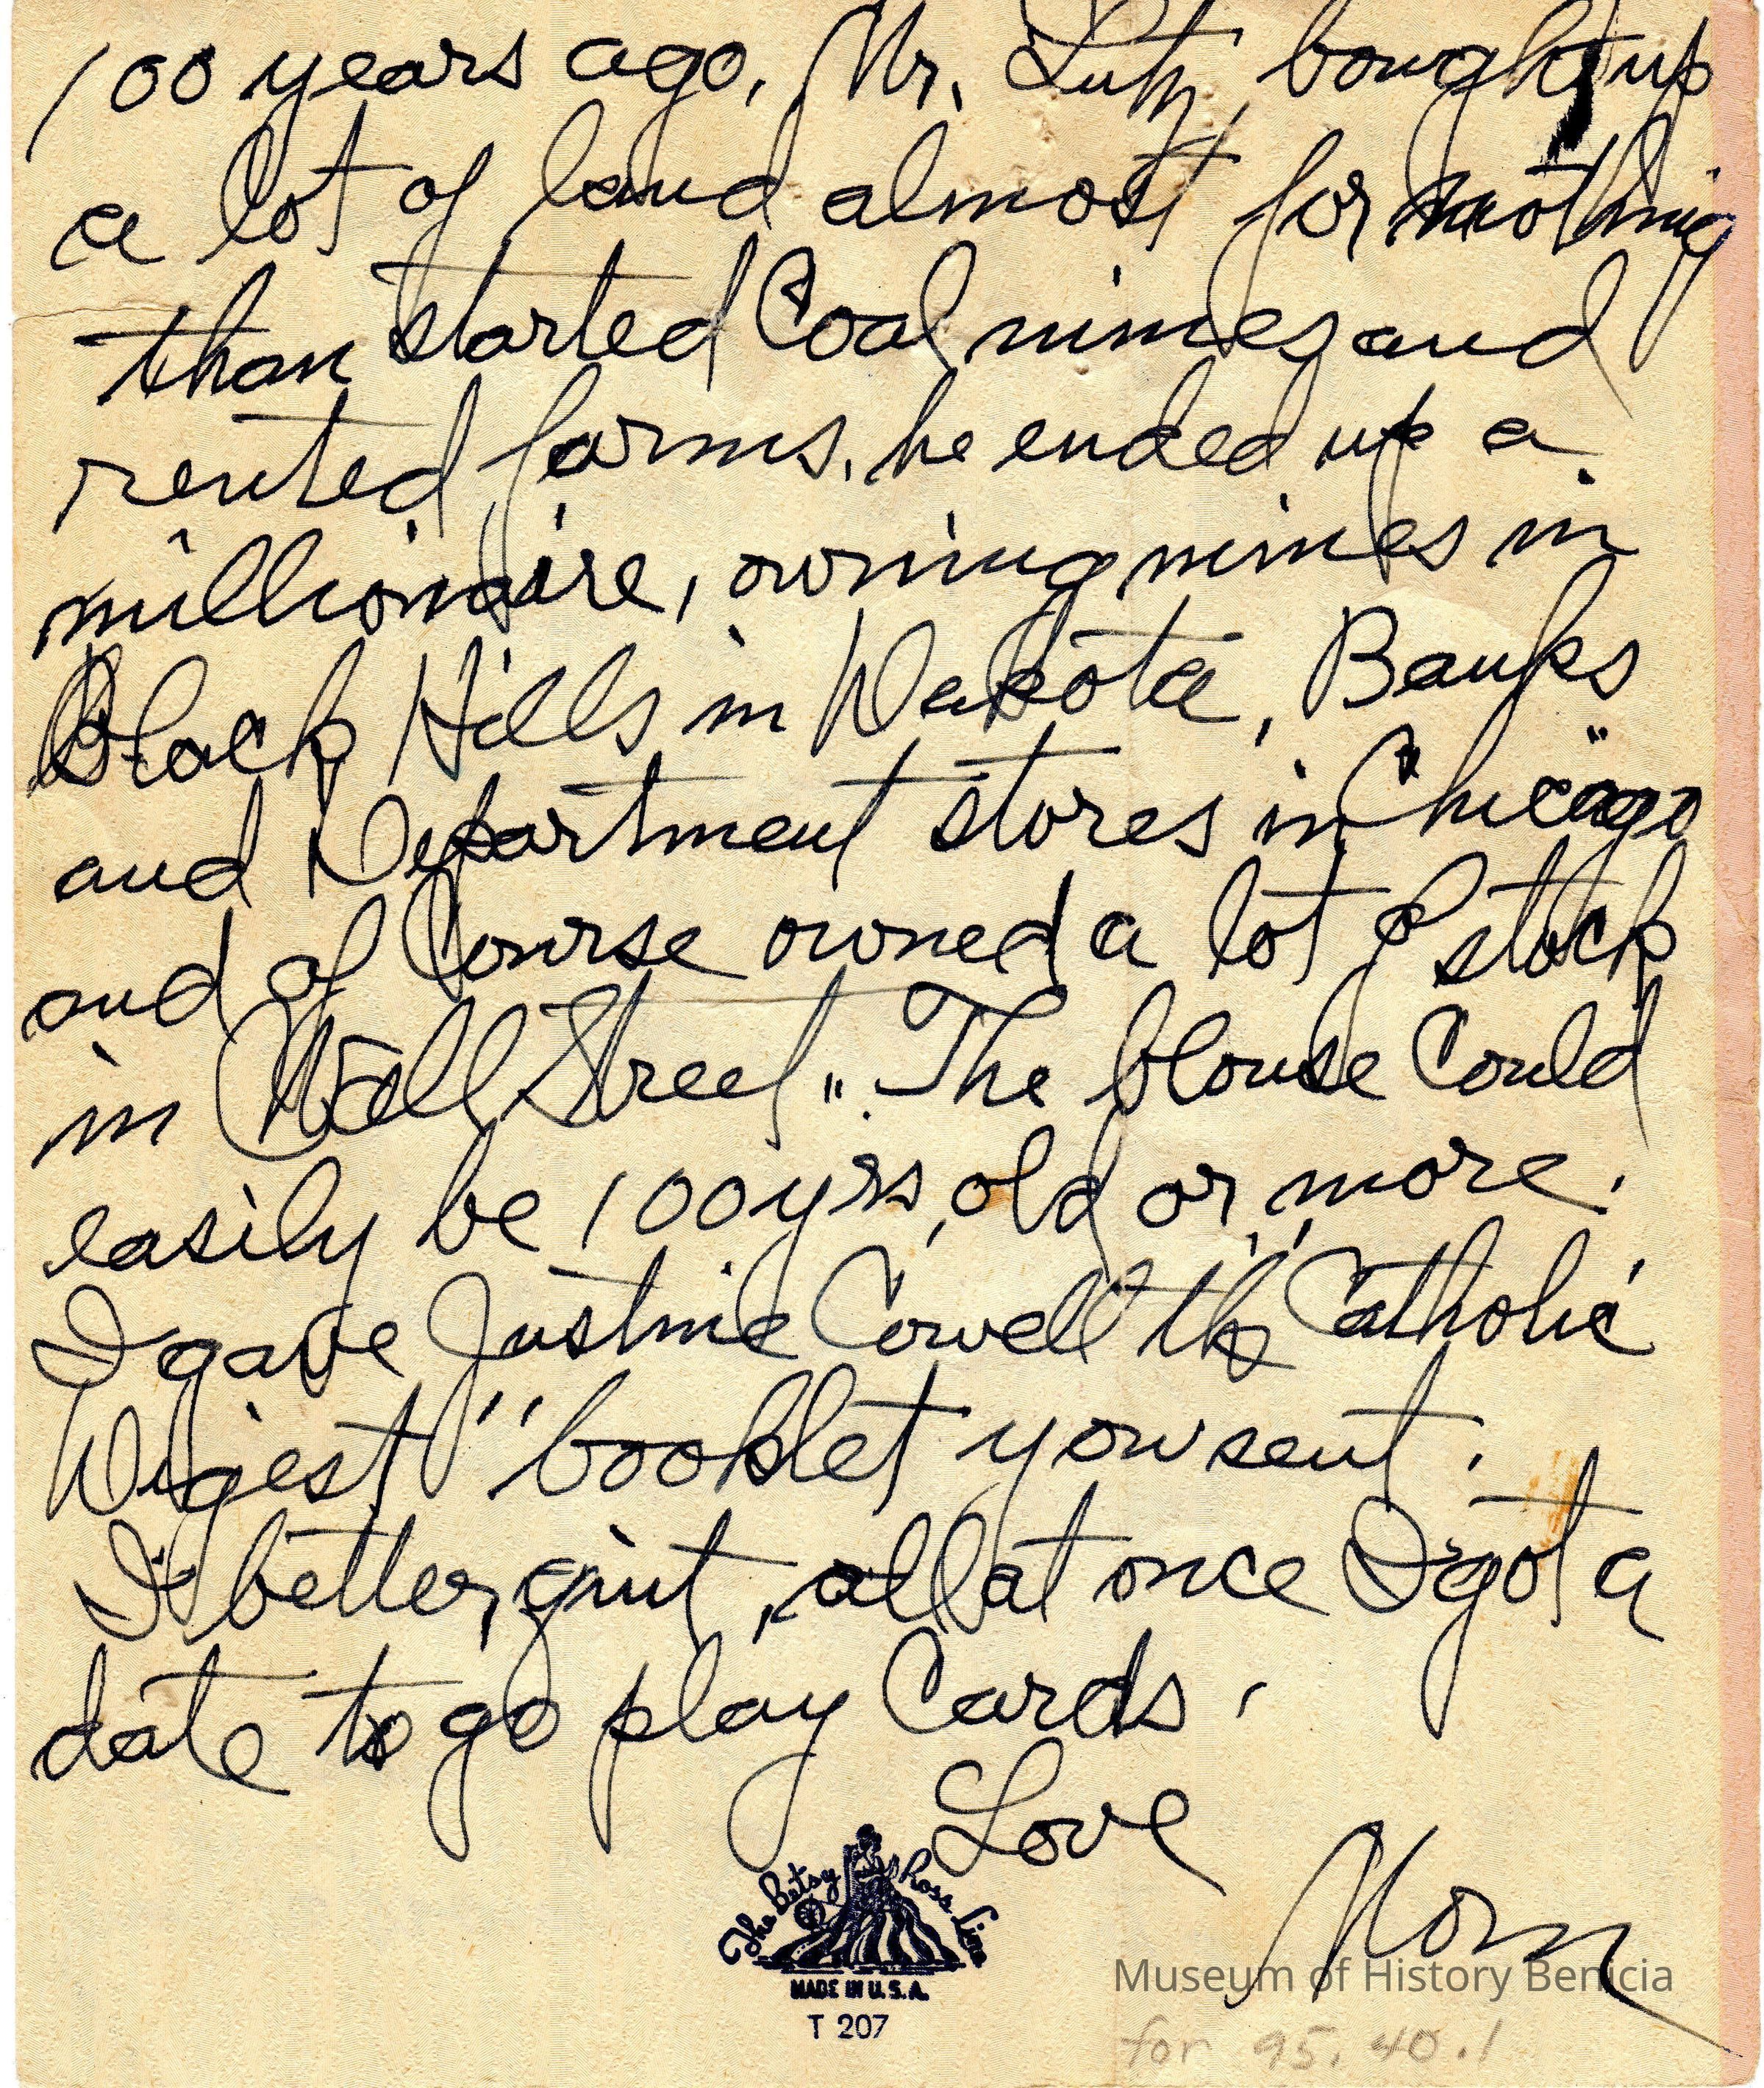 100 years ago, Mr. Lutz bought up
a lot of land almost for nothing
than started Coal mines and
rented farms, he ended up a
millionaire, owning mines in
Black Hills in Dakota, Banks
and Department stores in Chicago
and of Course owned a lot of stock
in Wall Street". The blouse Could
easily be 100 yrs, old or more.
I gave Justine Cowell the "Catholic
Digest" booklet you sent.
I better quit, all at once I got a
date to go play Cards.
Love
Mom
The Betsy Ross Line
MADE IN U.S.A.
T 207
Museum of History Benicia
for 95.40.1